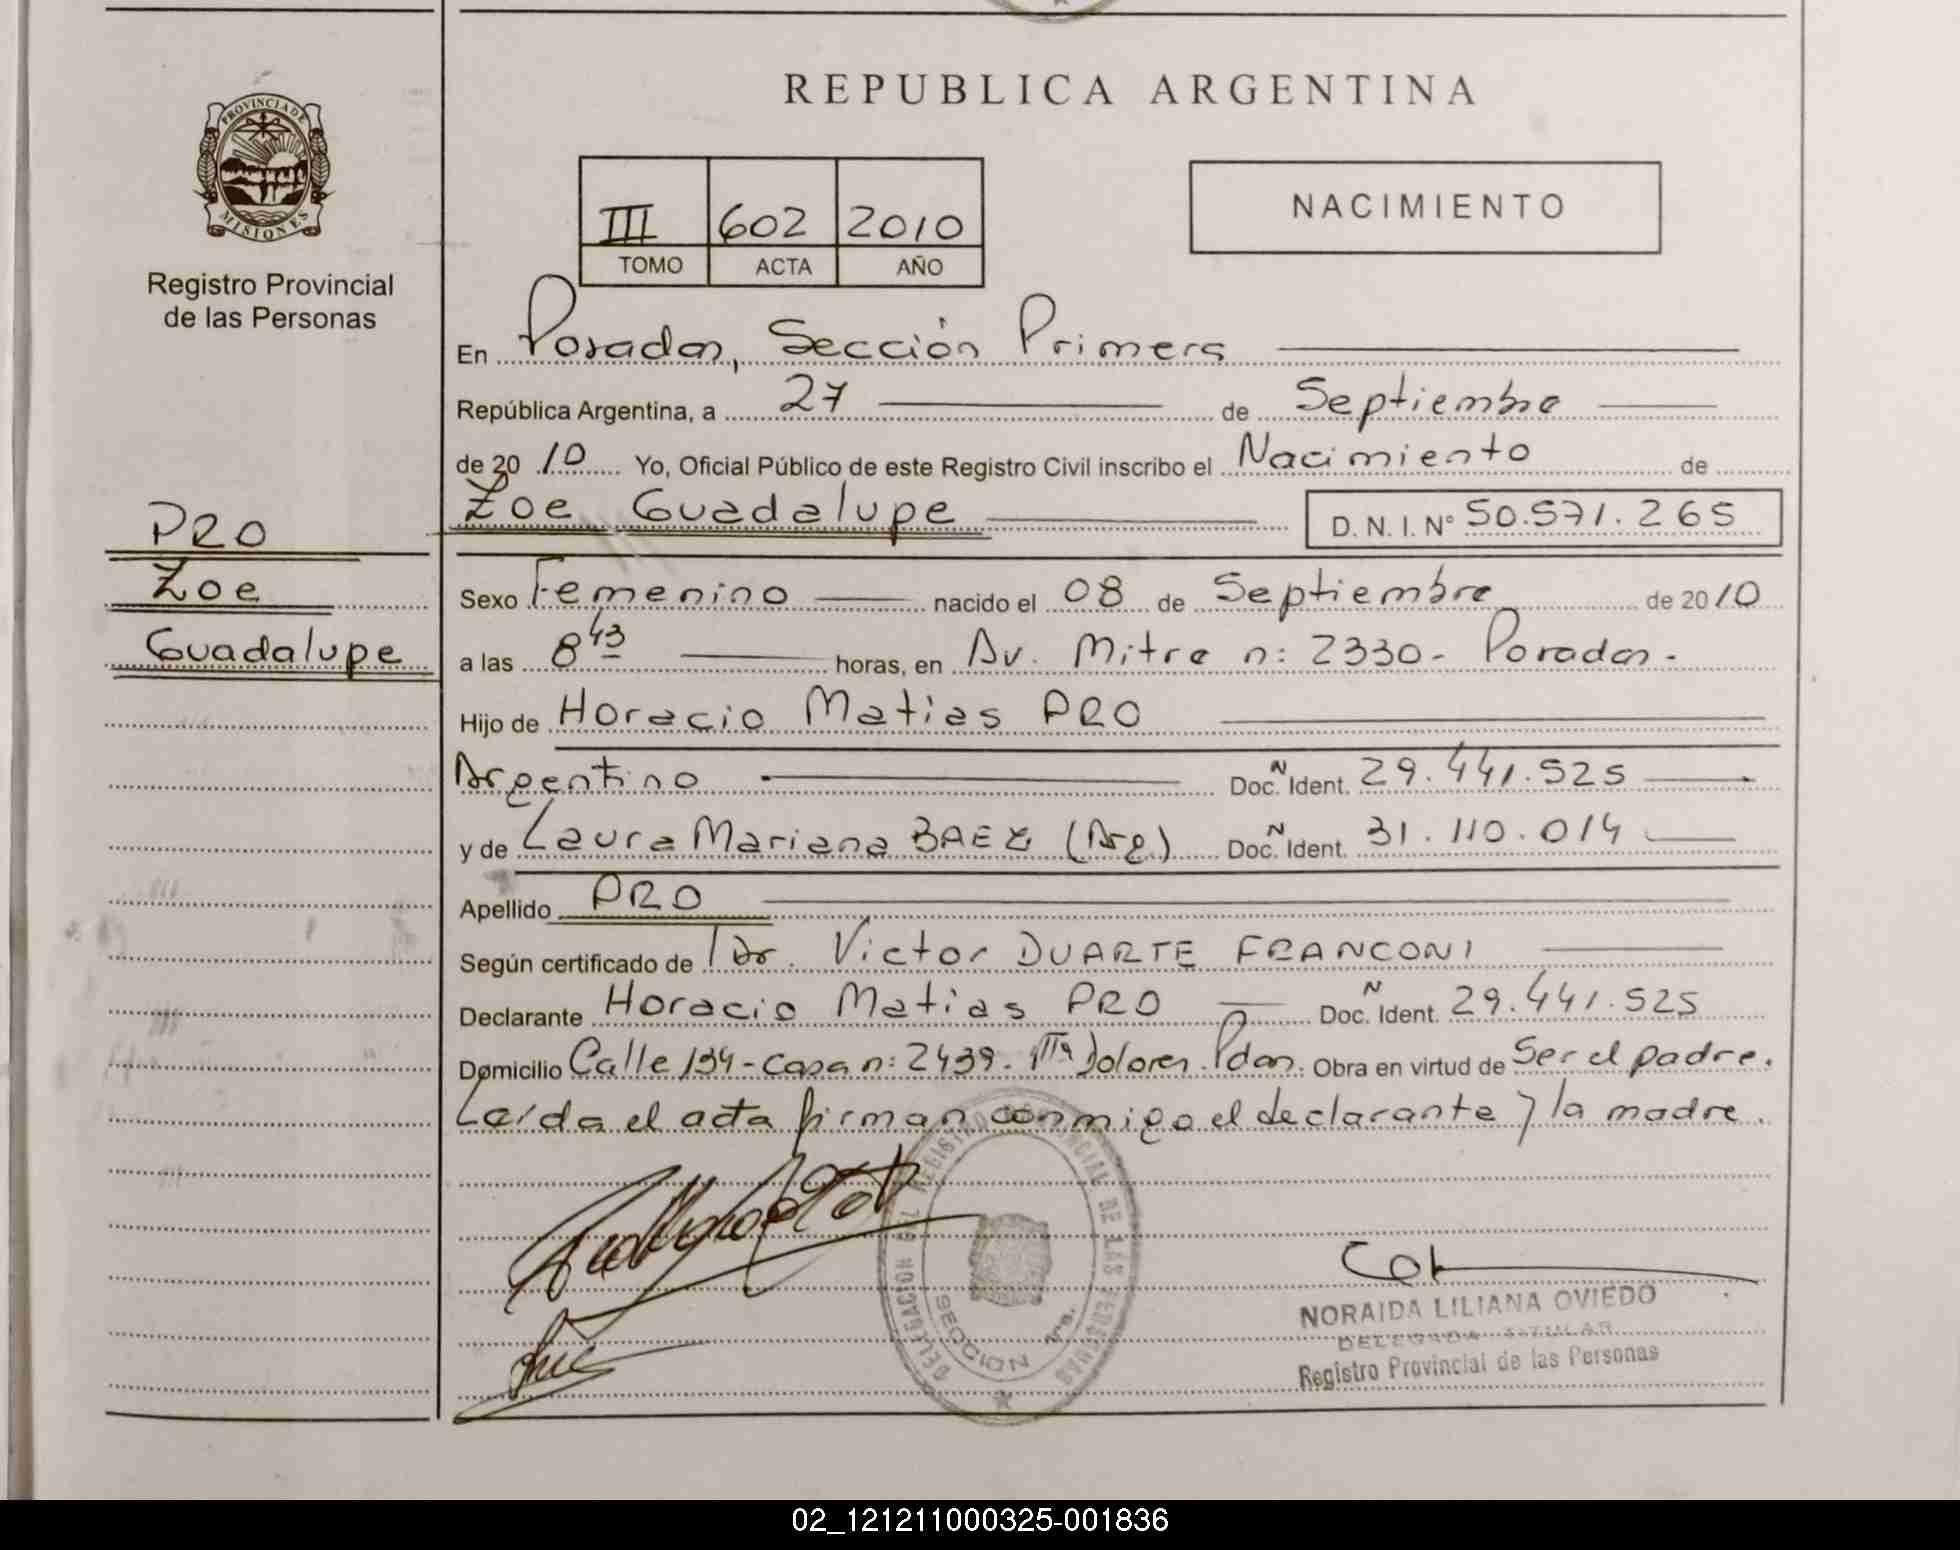 REPUBLICA ARGENTINA
PROVINCIA DE MISIONES
Registro Provincial
de las Personas
III 602 2010
TOMO ACTA AÑO
NACIMIENTO
En Posadas, Sección Primera
República Argentina, a 27 de Septiembre
de 2010 Yo, Oficial Público de este Registro Civil inscribo el Nacimiento de
Zoe Guadalupe D. N. I. N° 50.571.265
PRO
Zoe
Guadalupe
Sexo Femenino nacido el 08 de Septiembre de 2010
a las 8 43 horas, en Av. Mitre n: 2330 - Posadas -
Hijo de Horacio Matias PRO
Argentino Doc. N Ident. 29.441.525
y de Laura Mariana BAEZ (Arg) Doc. N Ident. 31.110.014
Apellido PRO
Según certificado de Dr. Victor DUARTE FRANCONI
Declarante Horacio Matias PRO Doc. N Ident. 29.441.525
Domicilio Calle 134 - casa n: 2439. Dolores. Pdas. Obra en virtud de Ser el padre.
Leída el acta firman conmigo el declarante y la madre.
DELEGACION DEL REGISTRO PROVINCIAL DE LAS PERSONAS
SECCION 1ra.
NORAIDA LILIANA OVIEDO
DELEGADA TITULAR
Registro Provincial de las Personas
02_121211000325-001836